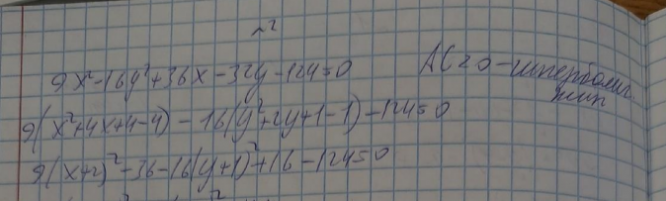 9x²-16y²+36x-32y-124=0 AC<0-гиперболич.
тип
9(x²+4x+4-4)-16(y²+2y+1-1)-124=0
9(x+2)²-36-16(y+1)²+16-124=0